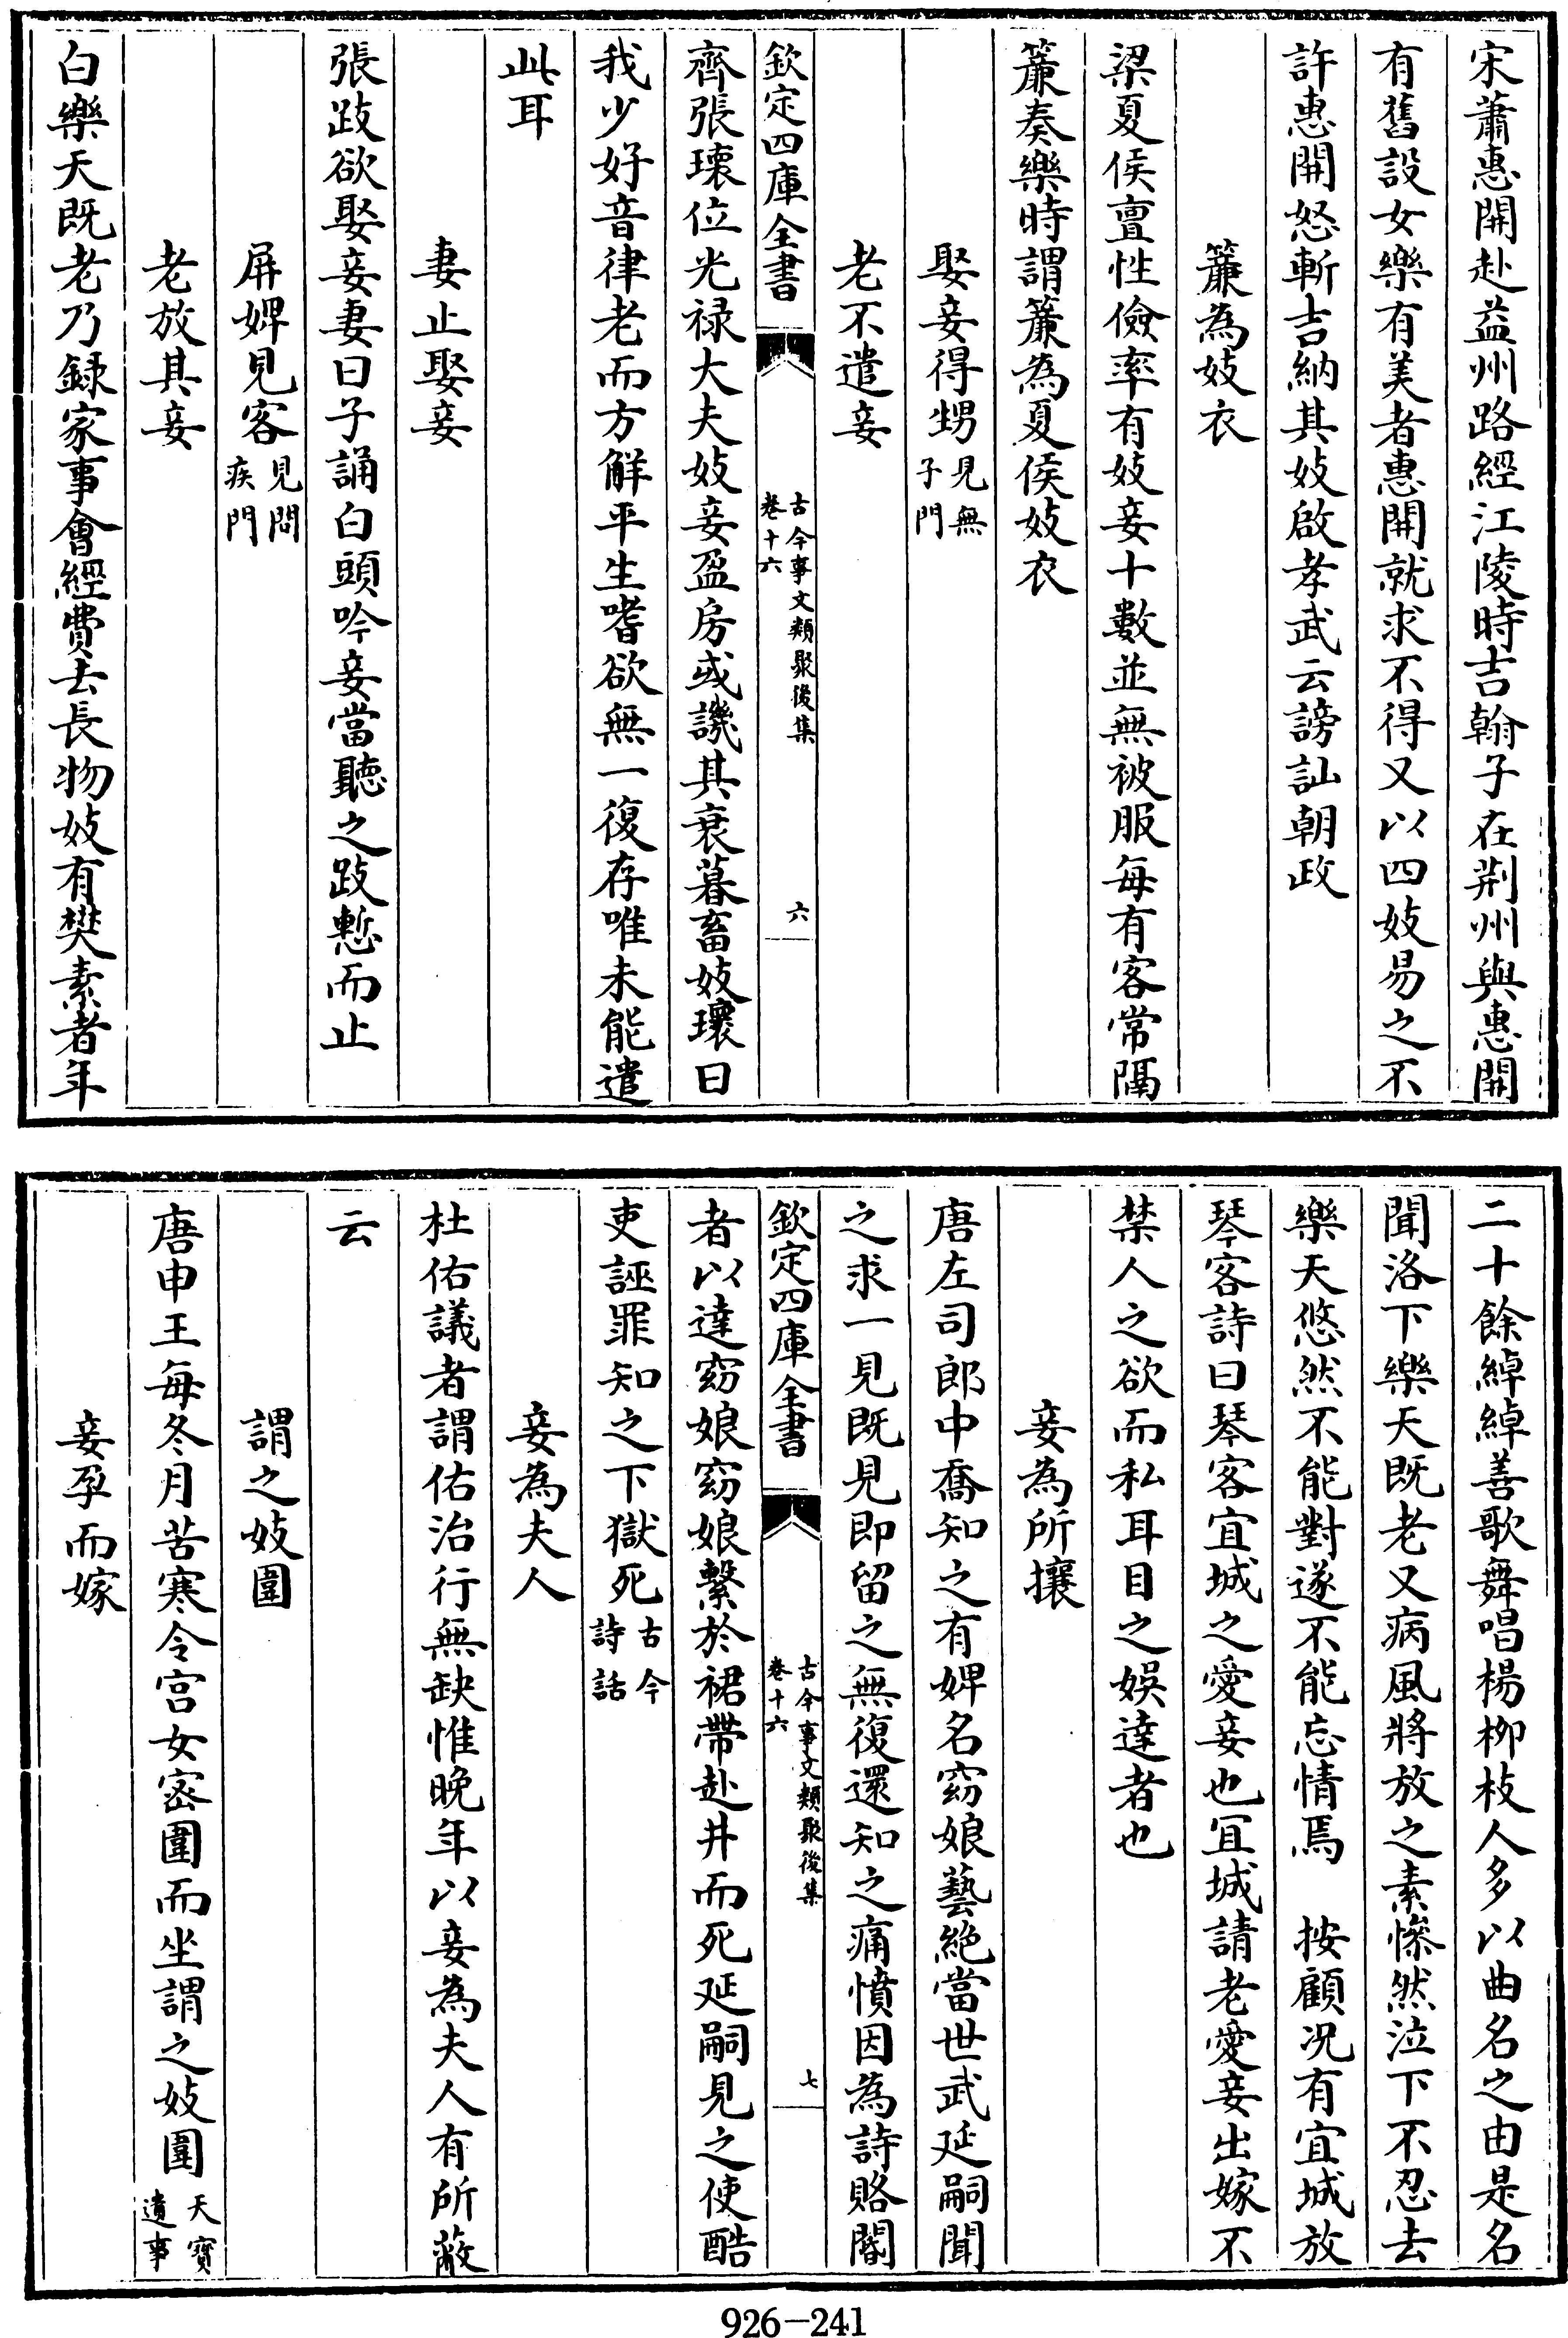 宋蕭惠開赴益州路經江陵時吉翰子在荆州與惠開
有舊設女樂有美者惠開就求不得又以四妓易之不
許惠開怒斬吉納其妓啟孝武云謗訕朝政
簾為妓衣
梁夏侯亶性儉率有妓妾十數並無被服每有客常隔
簾奏樂時謂簾為夏侯妓衣
娶妾得甥見無子門
老不遣妾
欽定四庫全書
古今事文類聚後集
卷十六
六
齊張瓌位光禄大夫妓妾盈房或譏其衰暮畜妓瓌曰
我少好音律老而方解平生嗜欲無一復存唯未能遣
此耳
妻止娶妾
張跂欲娶妾妻曰子誦白頭吟妾當聽之跂慙而止
屏婢見客見問疾門
老放其妾
白樂天既老乃録家事會經費去長物妓有樊素者年
二十餘綽綽善歌舞唱楊柳枝人多以曲名之由是名
聞洛下樂天既老又病風將放之素慘然泣下不忍去
樂天悠然不能對遂不能忘情焉　按顧况有宜城放
琴客詩曰琴客宜城之愛妾也宜城請老愛妾出嫁不
禁人之欲而私耳目之娛達者也
妾為所攘
唐左司郎中喬知之有婢名窈娘藝絶當世武延嗣聞
之求一見既見即留之無復還知之痛憤因為詩賂閽
欽定四庫全書
古今事文類聚後集
卷十六
七
者以達窈娘窈娘繫於裙帶赴井而死延嗣見之使酷
吏誣罪知之下獄死古今詩話
妾為夫人
杜佑議者謂佑治行無缺惟晚年以妾為夫人有所蔽
云
謂之妓圍
唐申王每冬月苦寒令宫女密圍而坐謂之妓圍天寳遺事
妾孕而嫁
926-241